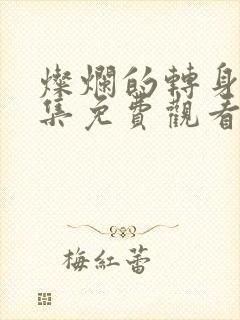 燦爛的轉身
集免費觀看
梅紅蕾